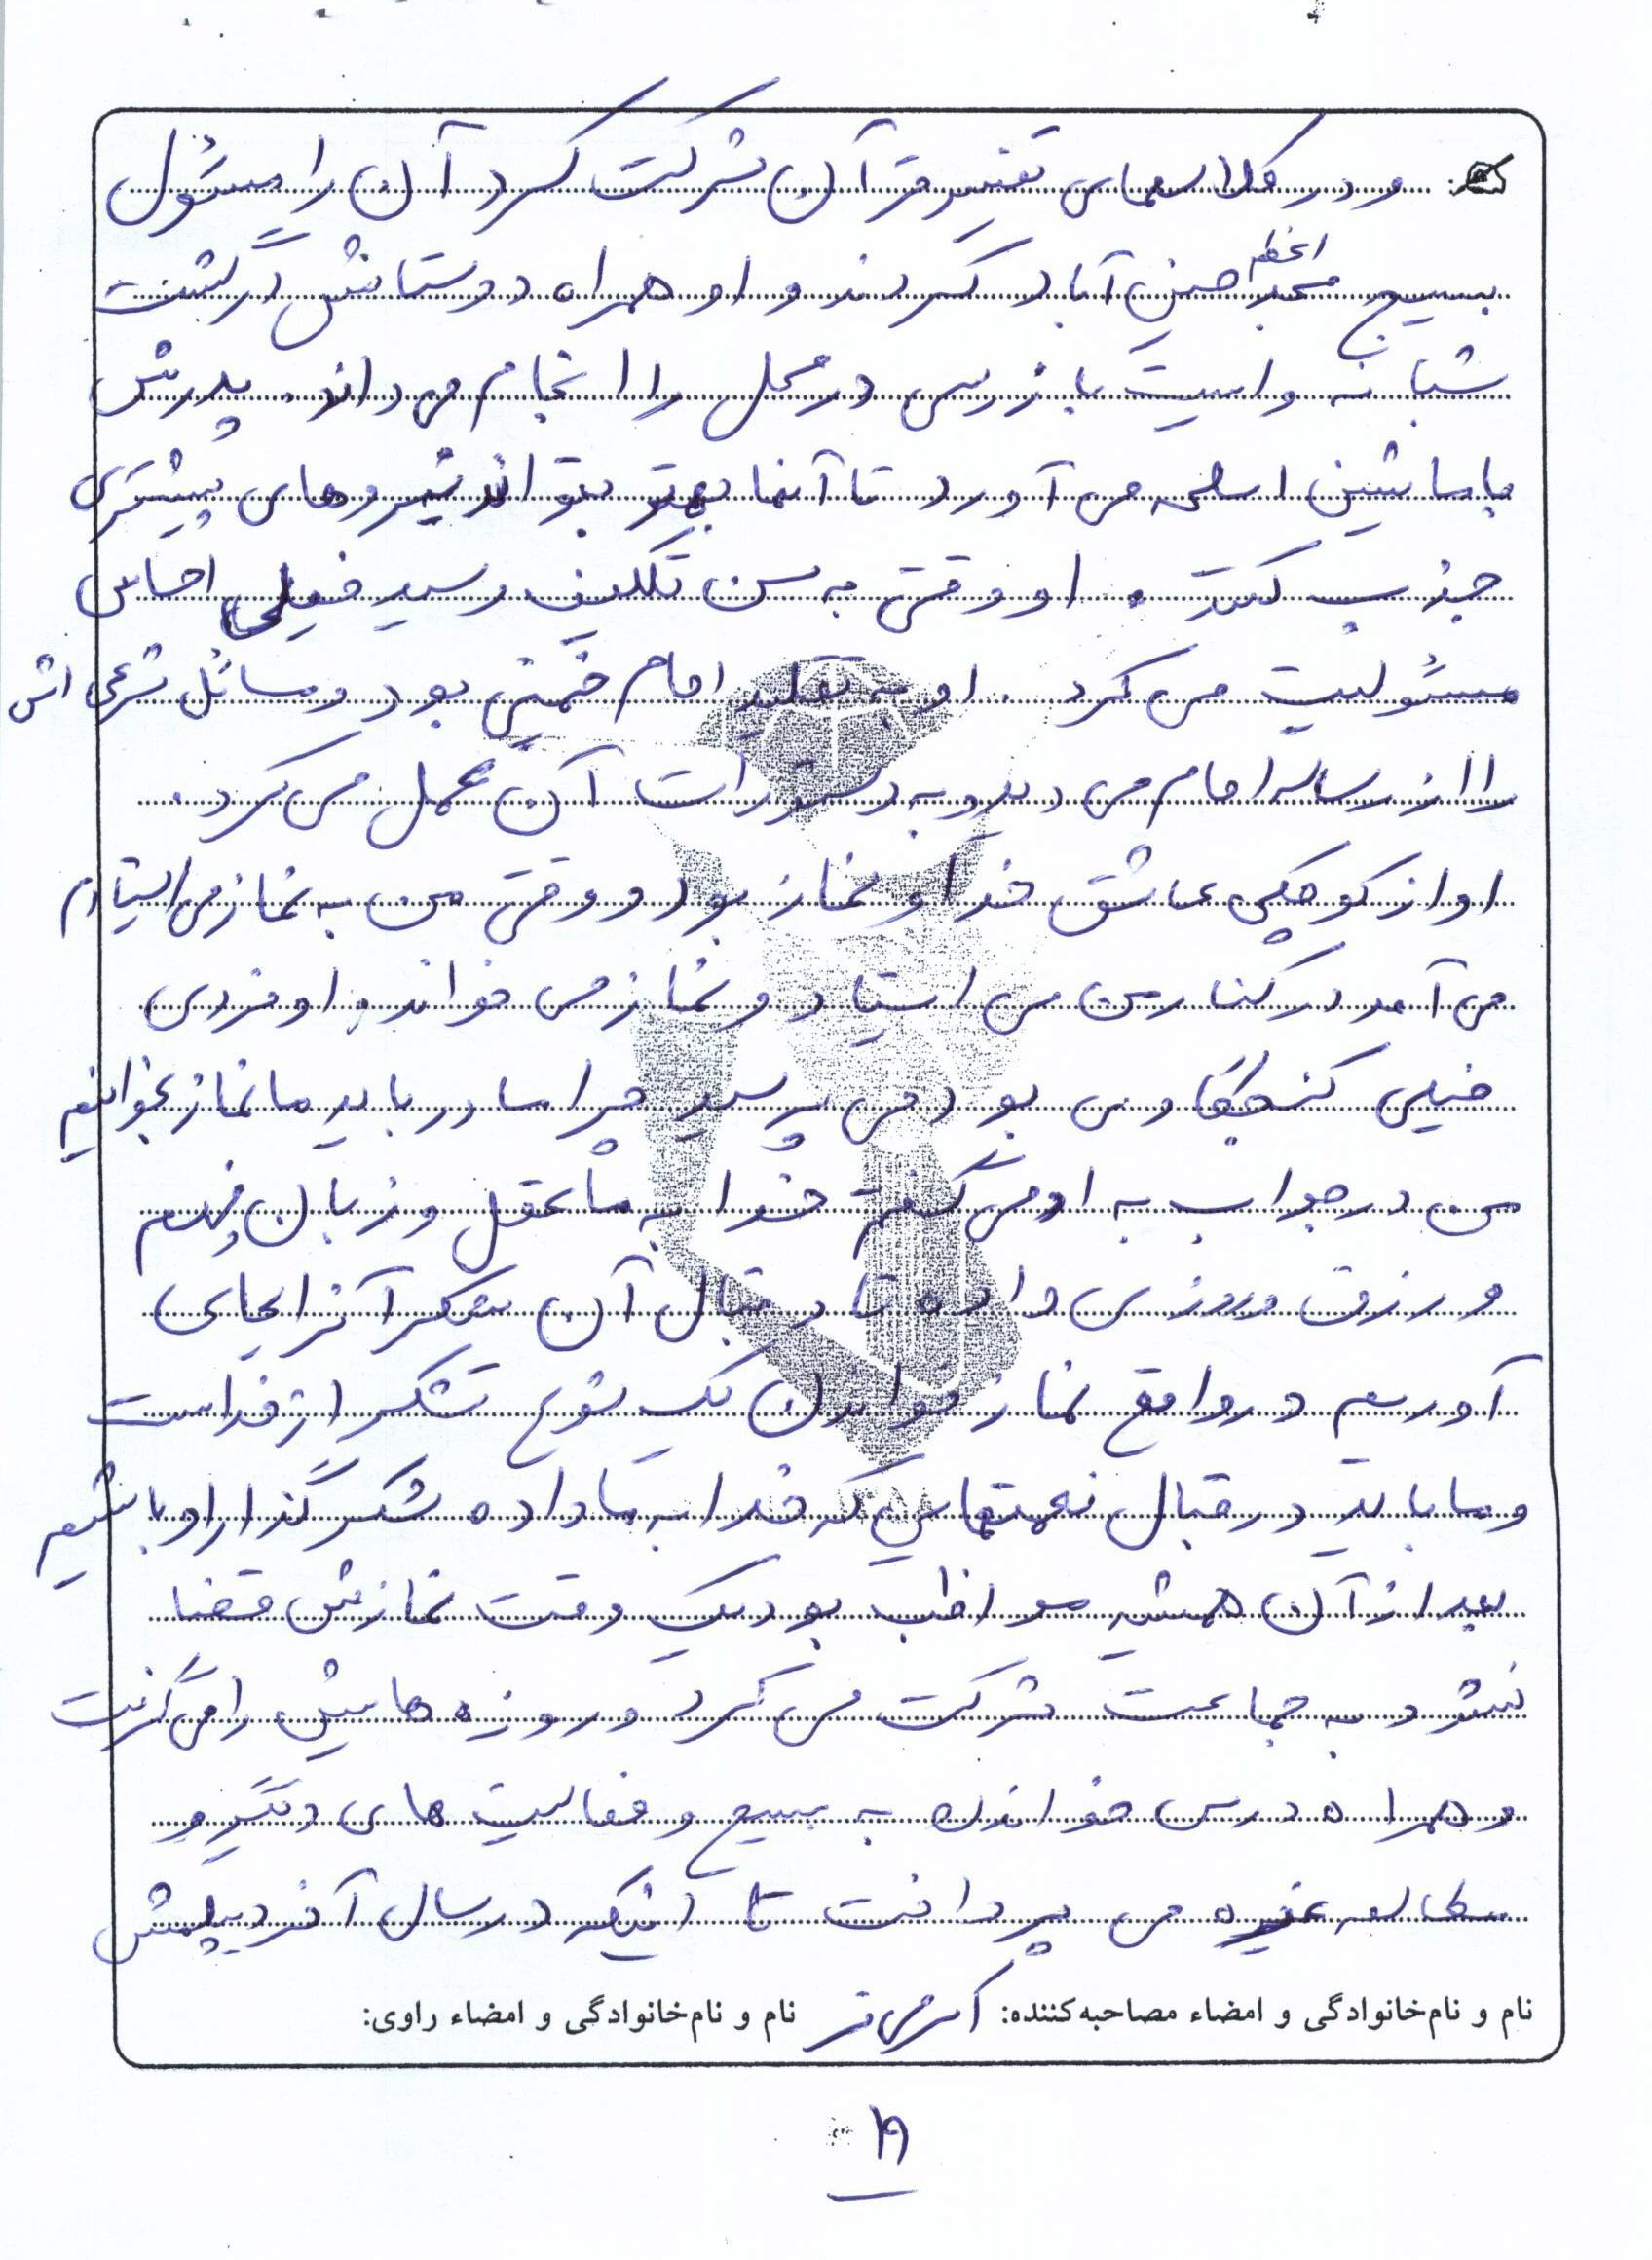 و در کلاسهای تفسیر قرآن شرکت کرد آن را مسئول
بسیج مسجد اعظم حسین آباد کردند و او همراه دوستانش در گشت
شبانه و ایست بازرسی در محل را انجام می داند. پدرش
با ماشین اسلحه می آورد تا آنها بهتر بتوانند نیروهای بیشتری
جذب کنند. او وقتی به سن تکلیف رسید خیلی احساس
مسئولیت می کرد. او به تقلید امام خمینی بود و مسائل شرعی اش
را از رساله امام می دید و به دستورات آن عمل می کرد.
او از کوچکی عاشق خدا و نماز بود و وقتی من به نماز می ایستادم
می آمد در کنار من می ایستاد و نماز می خواند. او فردی
خیلی کنجکاوی بود می پرسید چرا مادر باید ما نماز بخوانیم
من در جواب به او می گفتم خدا به ما عقل و زبان فهم
و رزق و روزی داده تا در قبال آن شکر آنرا بجای
آوریم در واقع نماز خواندن یک نوع تشکر از خداست
و ما باید در قبال نعمتهایی که خدا به ما داده شکر گذار او باشیم
بعد از آن همیشه مواظب بود یک وقت نمازش قضا
نشود به جماعت شرکت می کرد و روزه هایش را می گرفت
و همراه درس خواندن به بسیج و فعالیت های دیگر و
مطالعه غیره می پرداخت تا اینکه در سال آخر دیپلمش
نام و نام‌خانوادگی و امضاء مصاحبه‌کننده: نام و نام‌خانوادگی و امضاء راوی:
۱۹